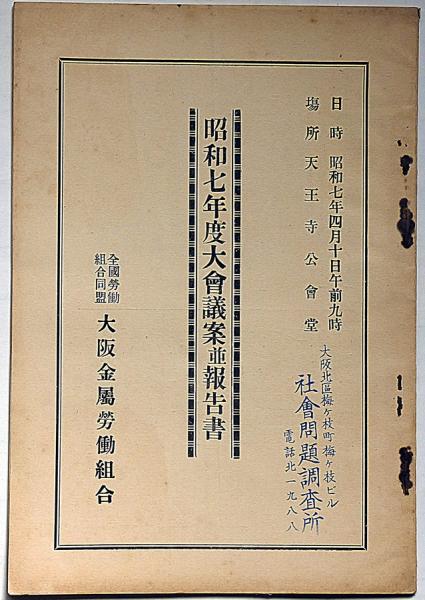 日時 昭和七年四月十日午前九時
塲所 天王寺公會堂
大阪北區梅ヶ枝町梅ヶ枝ビル
社會問題調査所
電話北一九八八
昭和七年度大會議案並報告書
全國勞働
組合同盟
大阪金屬勞働組合